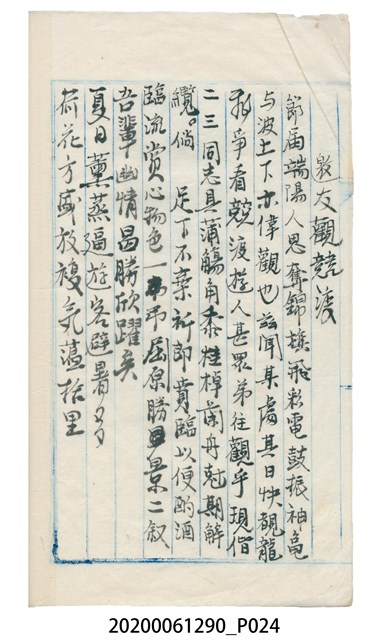 邀友觀競渡
節屆端陽人思奪錦旗飛彩電鼓振神黿
与波土下亦偉觀也玆聞某處某日快覩龍
舟爭看競渡遊人甚眾弟往觀乎現偕
二三同志具蒲觴角黍桂棹蘭舟尅期解
纜。倘 足下不棄祈即賁臨以便酌酒
臨流賞心物色一弔屈原勝景二叙
吾輩幽情曷勝欣躍矣
夏日薰蒸逼遊客避暑多
荷花方盛放馥氣蕩十里
20200061290_P024